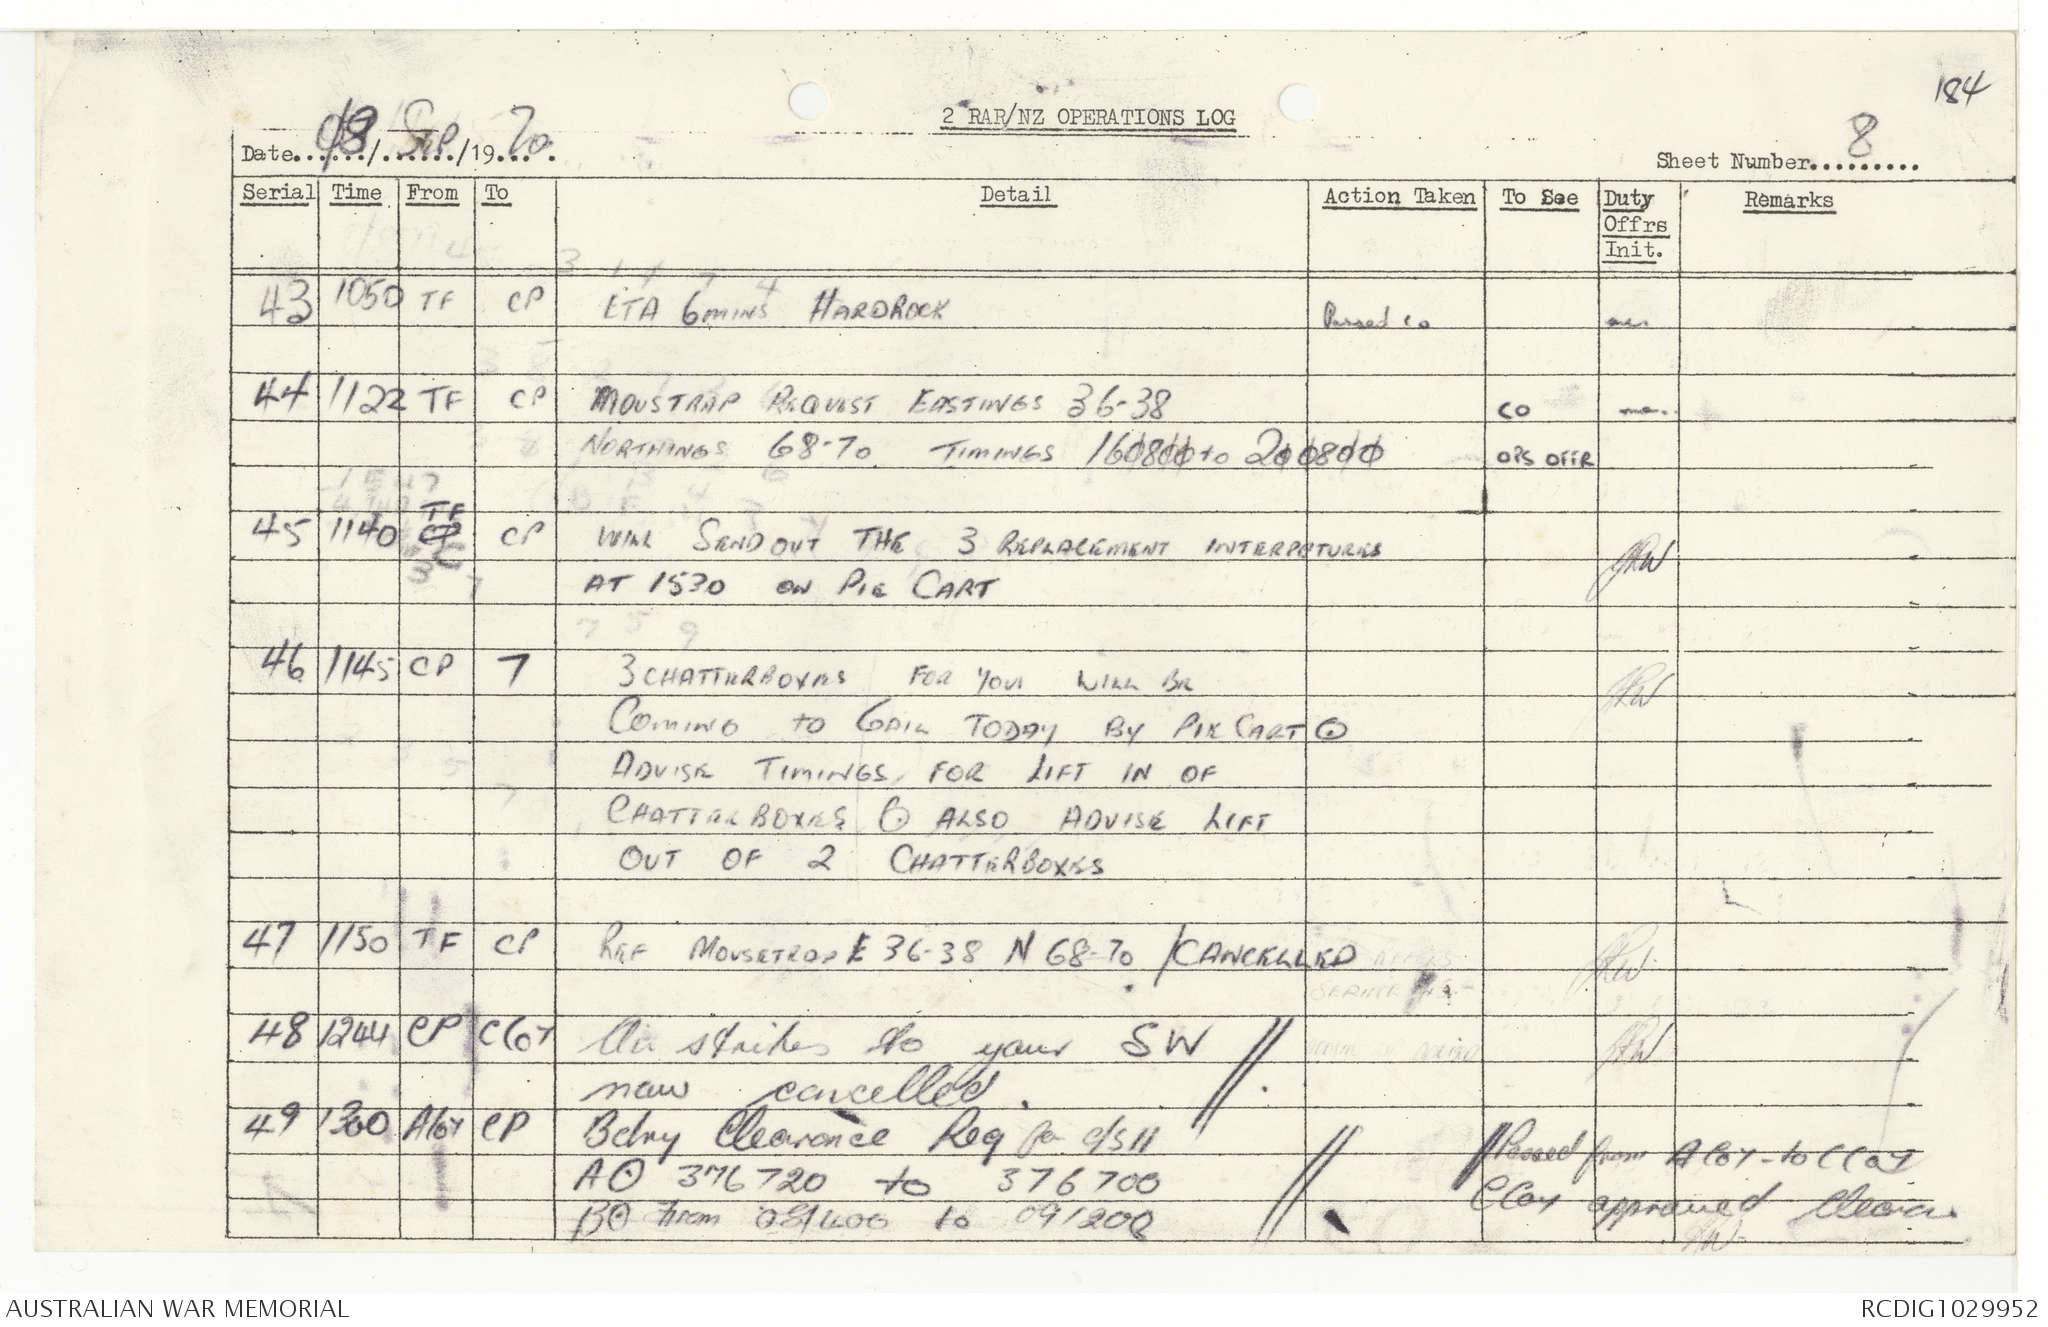 184
2 RAR/NZ OPERATIONS LOG
Date 08/Sep/1970. Sheet Number 8
Serial Time From To Detail Action Taken To See Duty Offrs Init. Remarks
43 1050 TF CP ETA 6 MINS HARDROCK Passed CO
44 1122 TF CP MOUSTRAP REQUEST EASTINGS 36-38 CO
NORTHINGS 68-70 TIMINGS 160800 to 200800 OPS OFFR
TF
45 1140 CP CP WILL SEND OUT THE 3 REPLACEMENT INTERPETURES JRW
AT 1530 ON PIE CART
46 1145 CP 7 3 CHATTERBOXES FOR YOU WILL BE JRW
COMING to GAIL TODAY BY PIE CART ⊙
ADVISE TIMINGS FOR LIFT IN OF
CHATTERBOXES ⊙ ALSO ADVISE LIFT
OUT OF 2 CHATTERBOXES
47 1150 TF CP REF MOUSETRAP E 36-38 N 68-70 / CANCELLED JRW
48 1244 CP CCoy Air strikes to your SW // JRW
now cancelled.
49 1300 ACoy CP Bdry Clearance Req for c/s 11
A⊙ 376720 to 376700 // Passed from A Coy - to C Coy
B⊙ From 081400 to 091200 C Coy approved
AUSTRALIAN WAR MEMORIAL RCDIG1029952